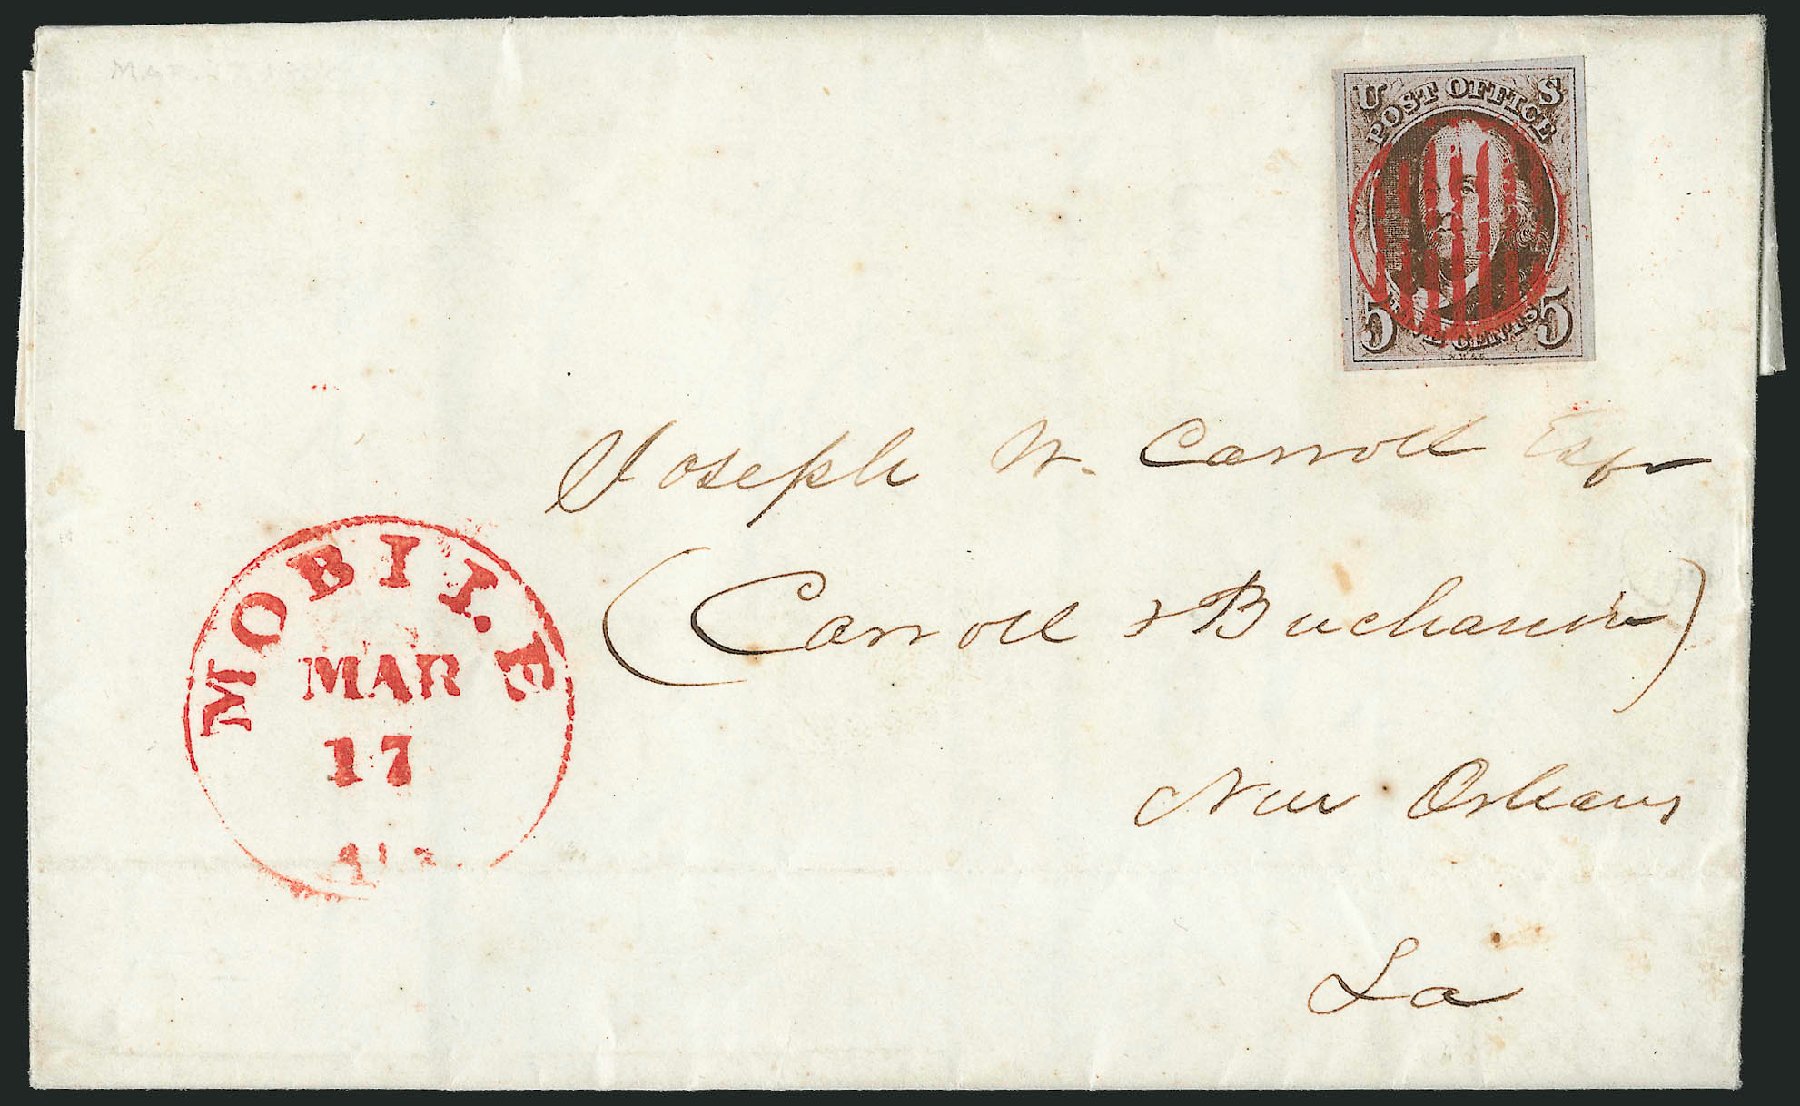 U S
POST OFFICE
5 CENTS 5
Joseph W. Carroll Esqr
(Carroll & Buchanan)
New Orleans
La
MOBILE
MAR
17